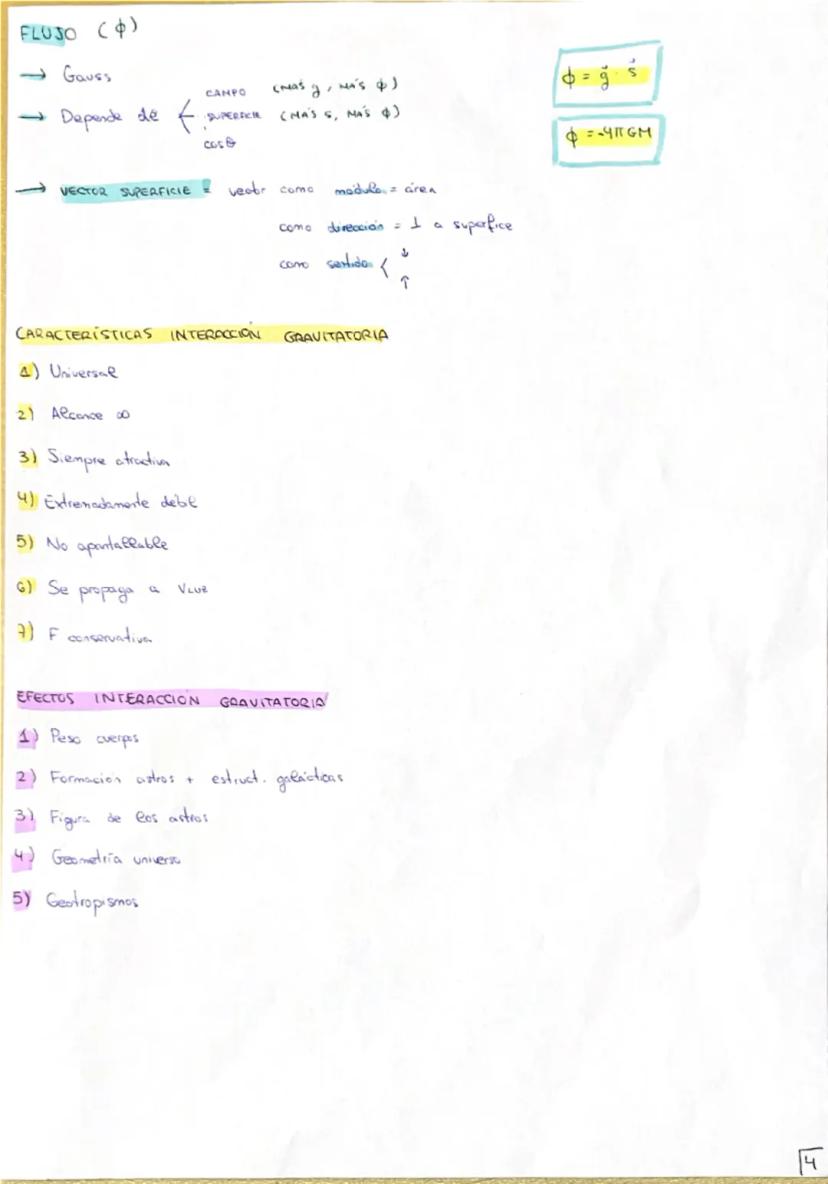 FLUJO (ϕ)
→ Gauss
→ Depende de
CAMPO (MÁS g, MÁS ϕ)
SUPERFICIE (MÁS S, MÁS ϕ)
cosθ
ϕ = g⃗ · s⃗
ϕ = -4πGM
→ VECTOR SUPERFICIE = vector como módulo = área
como dirección = ⊥ a superfice
como sentido < ↓
↑
CARACTERÍSTICAS INTERACCIÓN GRAVITATORIA
1) Universal
2) Alcance ∞
3) Siempre atractiva
4) Extremadamente débil
5) No apantallable
6) Se propaga a VLUZ
7) F conservativa
EFECTOS INTERACCIÓN GRAVITATORIA
1) Peso cuerpos
2) Formación astros + estruct. galácticas
3) Figura de los astros
4) Geometría universo
5) Geotropismos
4